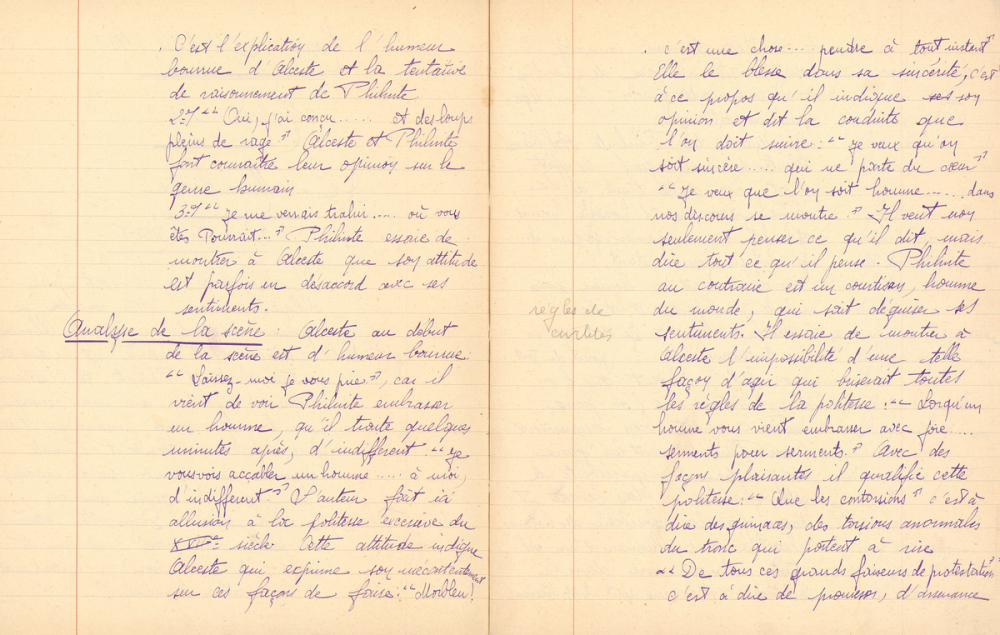 . C'est l'explication de l'humeur
bourrue d'Alceste et la tentative
de raisonnement de Philinte
2-° " Oui, j'ai conçu...... et des loups
pleins de rage " Alceste et Philinte
font connaître leur opinion sur le
genre humain
3-° " Je me verrais trahir..... où vous
êtes Pourrait..." Philinte essaie de
montrer à Alceste que son attitude
est parfois en désaccord avec ses
sentiments.
Analyse de la scène : Alceste au début
de la scène est d'humeur bourrue
" Laissez-moi je vous prie ", car il
vient de voir Philinte embrasser
un homme, qu'il traite quelques
minutes après, d'indifferent " Je
vous vois accabler un homme .... à moi,
d'indifferent " L'auteur fait ici
allusion à la politesse excessive du
XVII° siècle Cette attitude indigne
Alceste qui exprime son mécontentement
sur ces façons de faire : " Morbleu !
. c'est une chose.... pendre à tout instant "
Elle le blesse dans sa sincérité, c'est
à ce propos qu'il indique ses son
opinion et dit la conduite que
l'on doit suivre : " Je veux qu'on
soit sincère ..... qui ne parte du cœur "
" Je veux que l'on soit homme ...... dans
nos discours se montre. " Il veut non
seulement penser ce qu'il dit, mais
dire tout ce qu'il pense. Philinte
au contraire est un courtisan, homme
du monde, qui sait déguiser ses
sentiments. Il essaie de montrer à
Alceste l'impossibilité d'une telle
façon d'agir qui briserait toutes
les règles de la politesse : " Lorsqu'un
homme vous vient embrasser avec joie ....
serments pour serments. " Avec des
façons plaisantes il qualifie cette
politesse : " Que les contorsions " c'est à
dire des grimaces, des torsions anormales
du tronc qui portent à rire
" De tous ces grands faiseurs de protestations "
c'est à dire de promesses, d'assurance
règles de
civilités